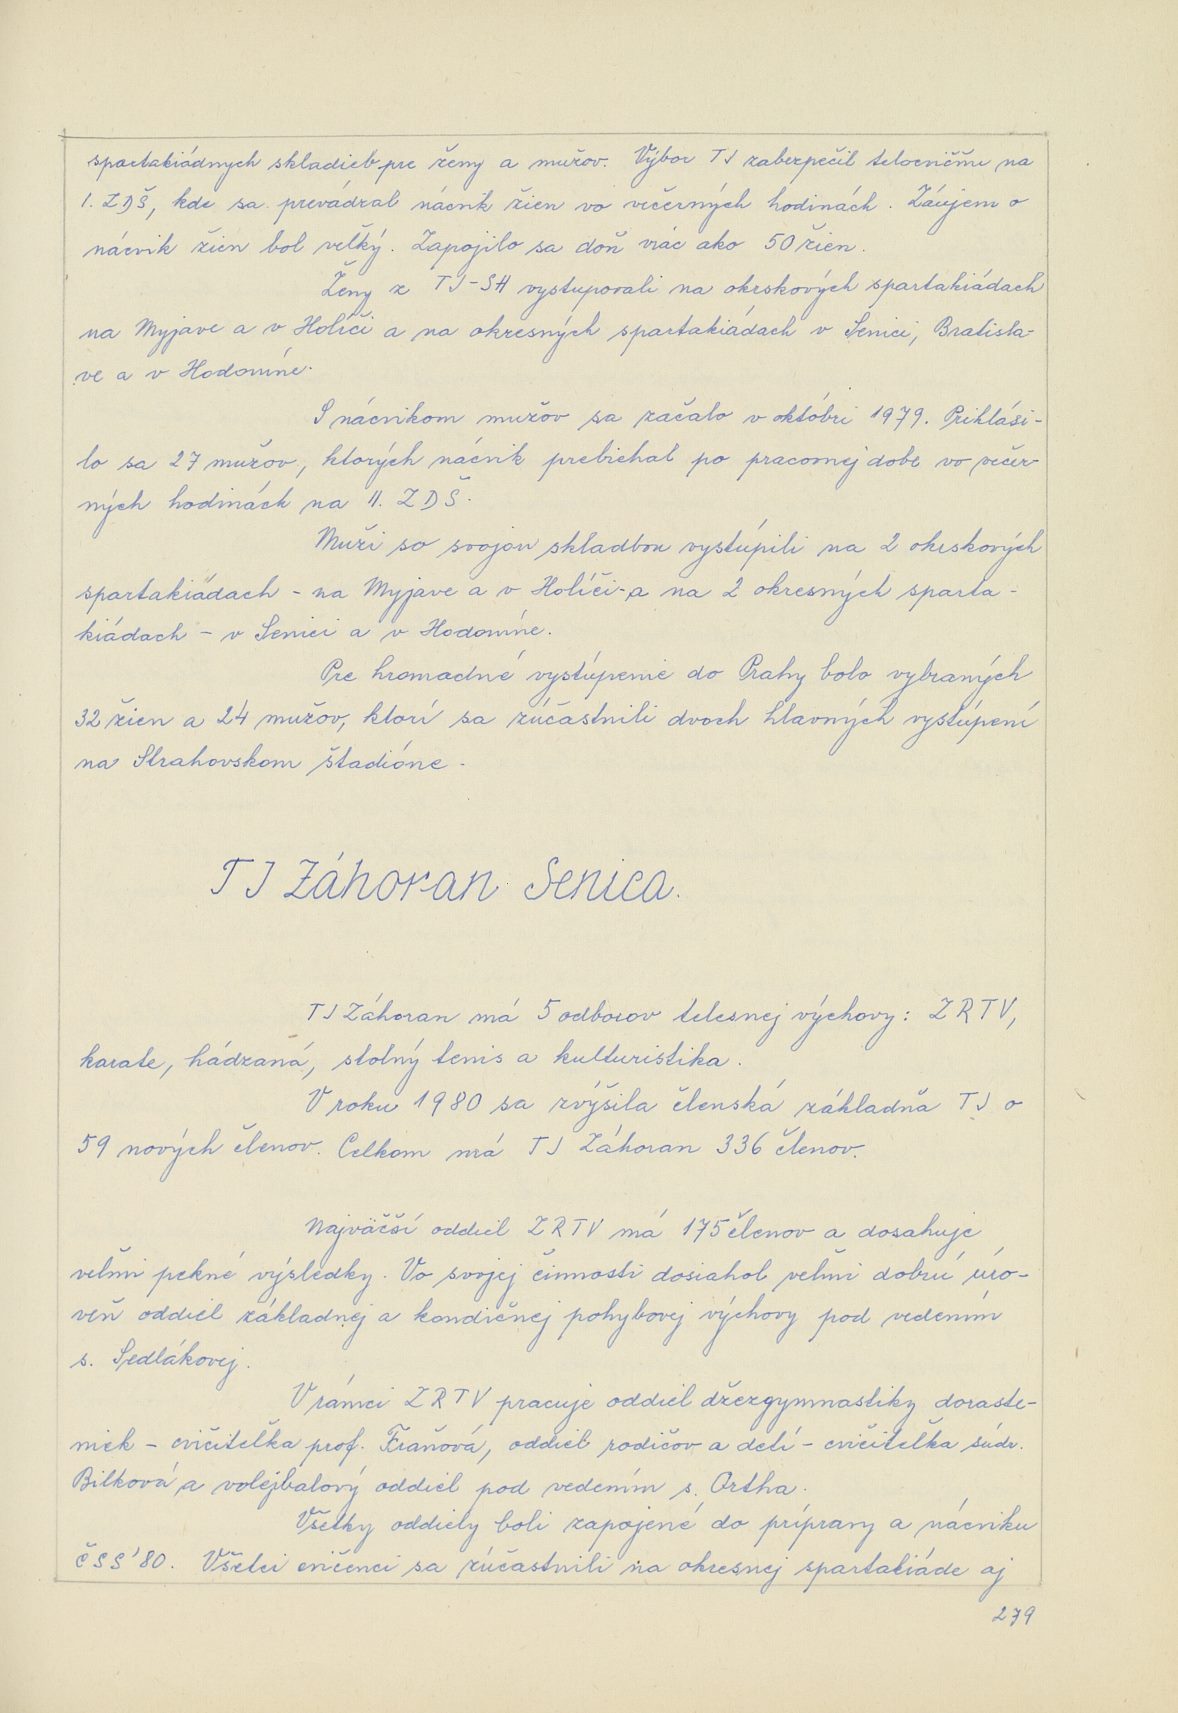 spartakiádnych skladieb pre ženy a mužov. Výbor TJ zabezpečil telocvičňu na
1. ZDŠ, kde sa prevádzal nácvik žien vo večerných hodinách. Záujem o
nácvik žien bol veľký. Zapojilo sa doň viac ako 50 žien.
Ženy z TJ-SH vystupovali na okrskových spartakiádach
na Myjave a v Holíči a na okresných spartakiádach v Senici, Bratisla-
ve a v Hodoníne.
S nácvikom mužov sa začalo v októbri 1979. Prihlási-
lo sa 27 mužov, ktorých nácvik prebiehal po pracovnej dobe vo večer-
ných hodinách na II. ZDŠ.
Muži so svojou skladbou vystúpili na 2 okrskových
spartakiádach - na Myjave a v Holíči - a na 2 okresných sparta-
kiádach - v Senici a v Hodoníne.
Pre hromadné vystúpenie do Prahy bolo vybraných
32 žien a 24 mužov, ktorí sa zúčastnili dvoch hlavných vystúpení
na Strahovskom štadióne.
TJ Záhoran Senica.
TJ Záhoran má 5 odborov telesnej výchovy: ZRTV,
karate, hádzaná, stolný tenis a kulturistika.
V roku 1980 sa zvýšila členská základňa TJ o
59 nových členov. Celkom má TJ Záhoran 336 členov.
Najväčší oddiel ZRTV má 175 členov a dosahuje
veľmi pekné výsledky. Vo svojej činnosti dosiahol veľmi dobrú úro-
veň oddiel základnej a kondičnej pohybovej výchovy pod vedením
s. Sedlákovej.
V rámci ZRTV pracuje oddiel džezgymnastiky doraste-
niek - cvičiteľka prof. Fraňová, oddiel rodičov a detí - cvičiteľka súdr.
Bilková a volejbalový oddiel pod vedením s. Ortha.
Všetky oddiely boli zapojené do prípravy a nácviku
ČSS'80. Všetci cvičenci sa zúčastnili na okresnej spartakiáde aj
279